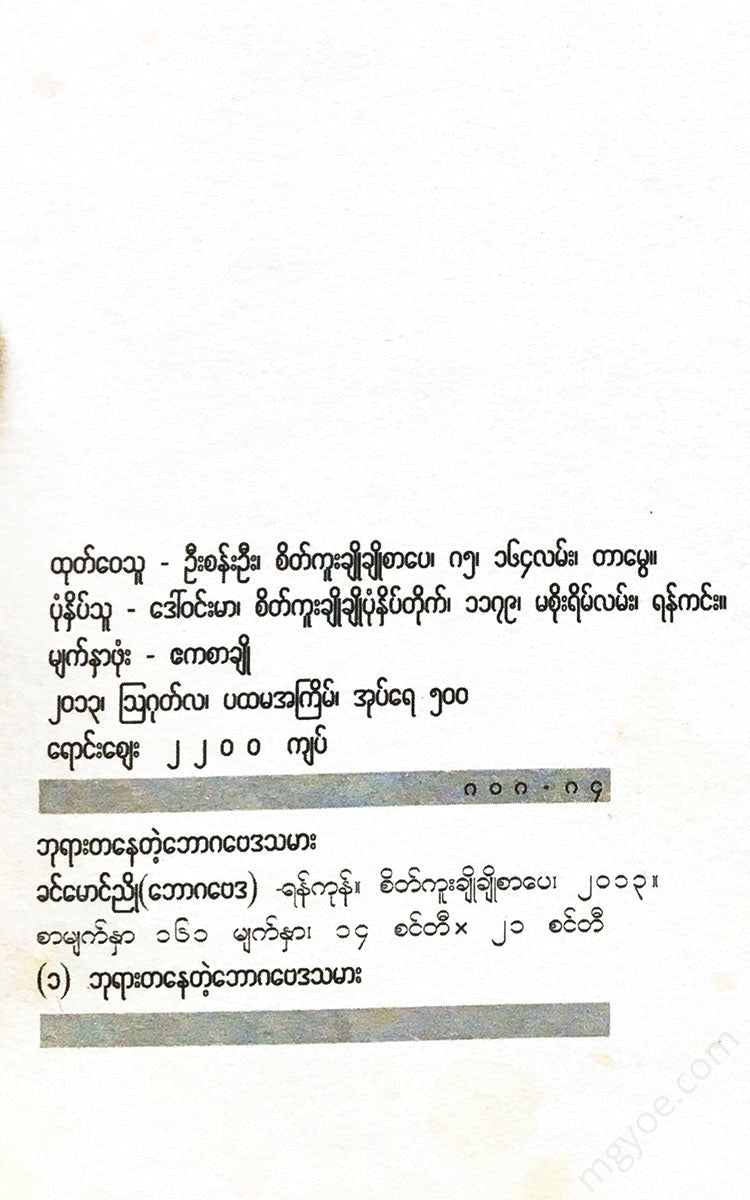 ထုတ်ဝေသူ - ဦးစန်းဦး၊ စိတ်ကူးချိုချိုစာပေ၊ ၈၅၊ ၁၆၄လမ်း၊ တာမွေ။
ပုံနှိပ်သူ - ဒေါ်ဝင်းမာ၊ စိတ်ကူးချိုချိုပုံနှိပ်တိုက်၊ ၁၁၇၉၊ မစိုးရိမ်လမ်း၊ ရန်ကင်း။
မျက်နှာဖုံး - ဧကစာချို
၂၀၁၃၊ ဩဂုတ်လ၊ ပထမအကြိမ်၊ အုပ်ရေ ၅၀၀
ရောင်းဈေး ၂ ၂ ၀ ၀ ကျပ်
၈ ၀ ၈ . ၈ ၄
ဘုရားတနေတဲ့ဘောဂဗေဒသမား
ခင်မောင်ညို(ဘောဂဗေဒ) -ရန်ကုန်။ စိတ်ကူးချိုချိုစာပေ၊ ၂၀၁၃။
စာမျက်နှာ ၁၆၁ မျက်နှာ၊ ၁၄ စင်တီ× ၂၁ စင်တီ
(၁) ဘုရားတနေတဲ့ဘောဂဗေဒသမား
mgyoe.com